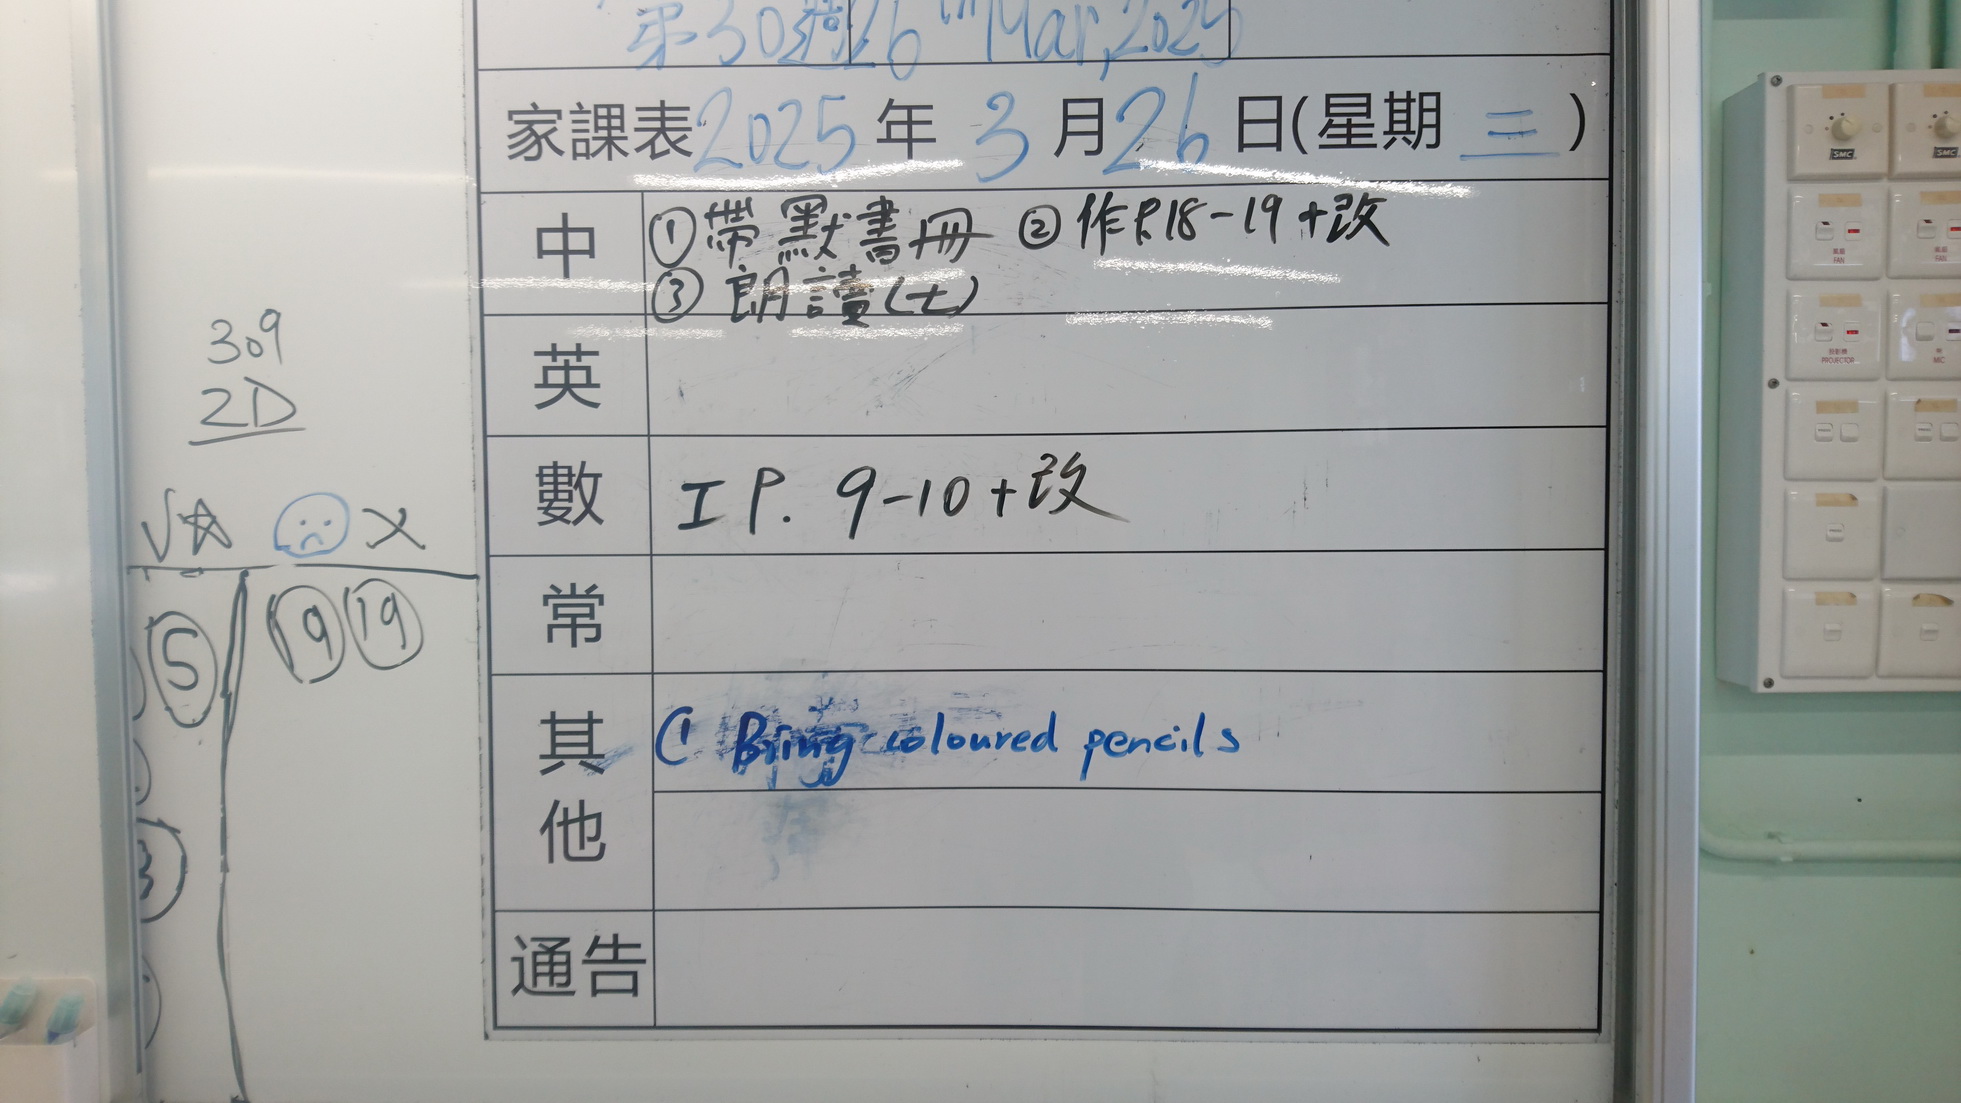 第30週 26th Mar, 2025
家課表 2025 年 3 月 26 日(星期 三 )
中 ① 帶默書冊 ② 作P.18-19+改
③ 朗讀(七)
英
數 工 P. 9-10+改
常
其他 ① Bring coloured pencils
通告
309
2D
5
19 19
3
SMC
SMC
風扇
FAN
FAN
投影機
PROJECTOR
MIC